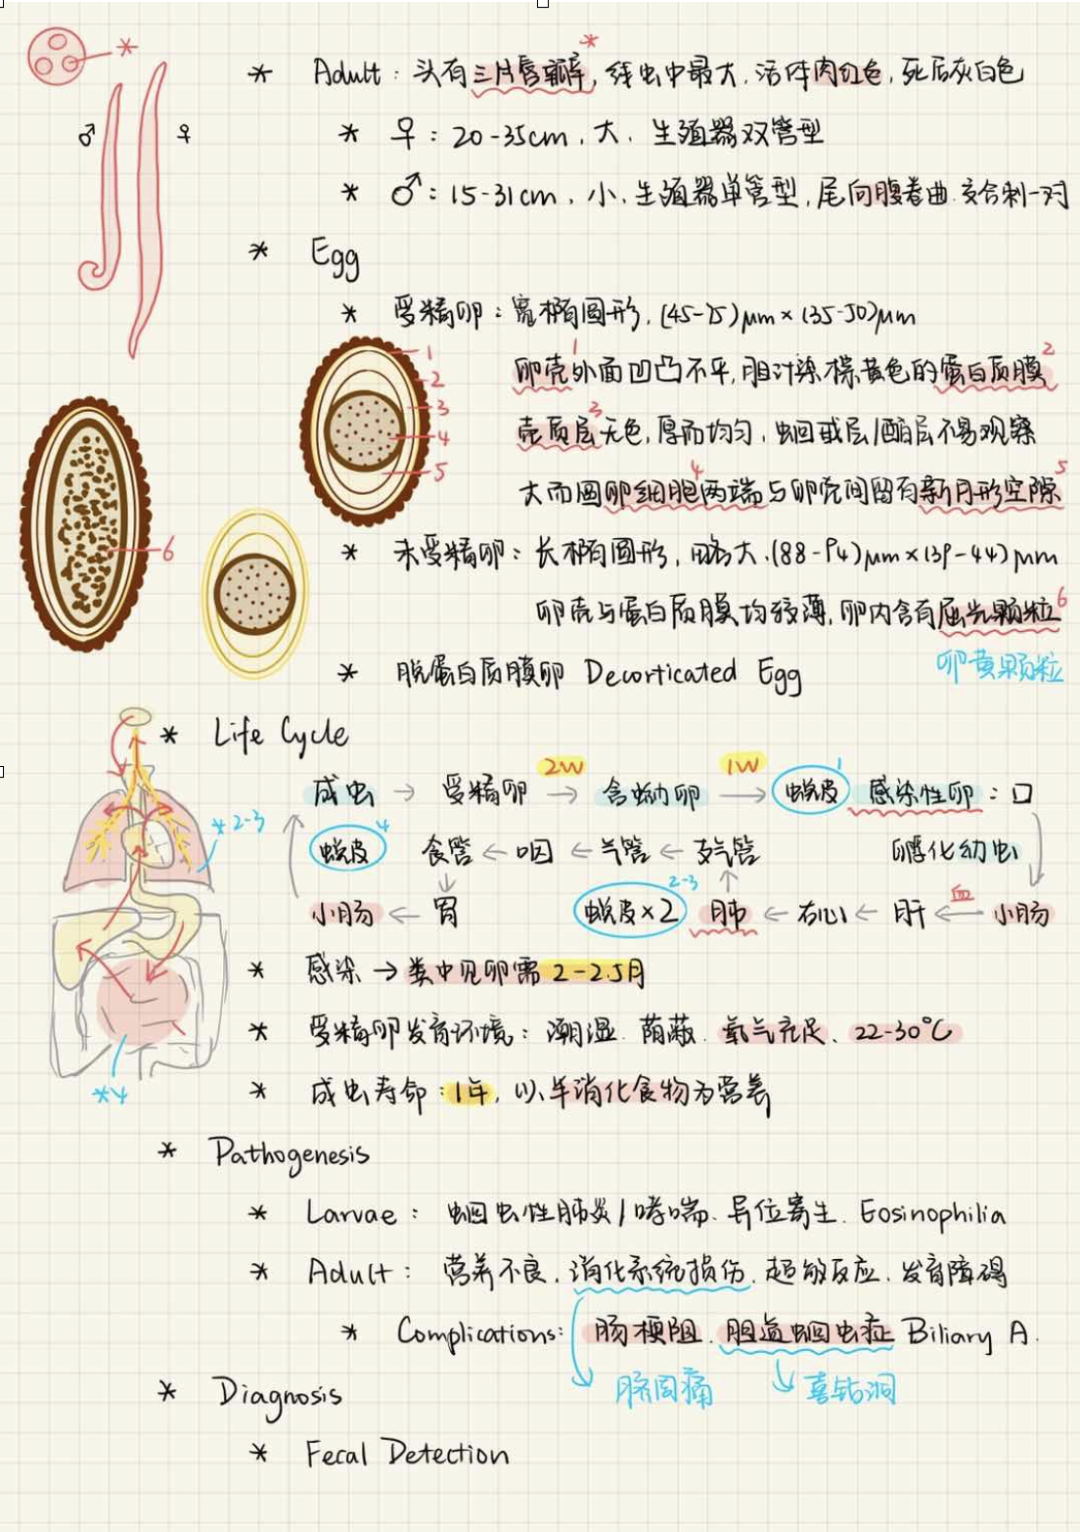 *
♂ ♀
* Adult：头有三片唇瓣*，线虫中最大，活体肉红色，死后灰白色
* ♀：20-35cm，大，生殖器双管型
* ♂：15-31cm，小，生殖器单管型，尾向腹卷曲，交合刺一对
* Egg
* 受精卵：宽椭圆形，(45-75)μm×(35-50)μm
卵壳1外面凹凸不平，胆汁染棕黄色的蛋白质膜2
壳质层3无色，厚而均匀，蛔甙层/酯层不易观察
大而圆卵细胞4两端与卵壳间留有新月形空隙5
1
2
3
4
5
6
* 未受精卵：长椭圆形，略大，(88-94)μm×(39-44)μm
卵壳与蛋白质膜均较薄，卵内含有屈光颗粒6
卵黄颗粒
* 脱蛋白质膜卵 Decorticated Egg
* Life Cycle
2W 1W
成虫 → 受精卵 → 含蚴卵 → 蜕皮1 感染性卵：口
蜕皮4 食管 ← 咽 ← 气管 ← 支气管 孵化幼虫
小肠 ← 胃 蜕皮×2 2-3 肺 ← 右心 ← 肝 ← 血 小肠
* 2-3
* 4
* 感染 → 粪中见卵需 2-2.5月
* 受精卵发育环境：潮湿、荫蔽、氧气充足、22-30°C
* 成虫寿命：1年，以半消化食物为营养
* Pathogenesis
* Larvae：蛔虫性肺炎/哮喘、异位寄生、Eosinophilia
* Adult：营养不良、消化系统损伤、超敏反应、发育障碍
* Complications：肠梗阻、胆道蛔虫症 Biliary A.
脐周痛 喜钻洞
* Diagnosis
* Fecal Detection